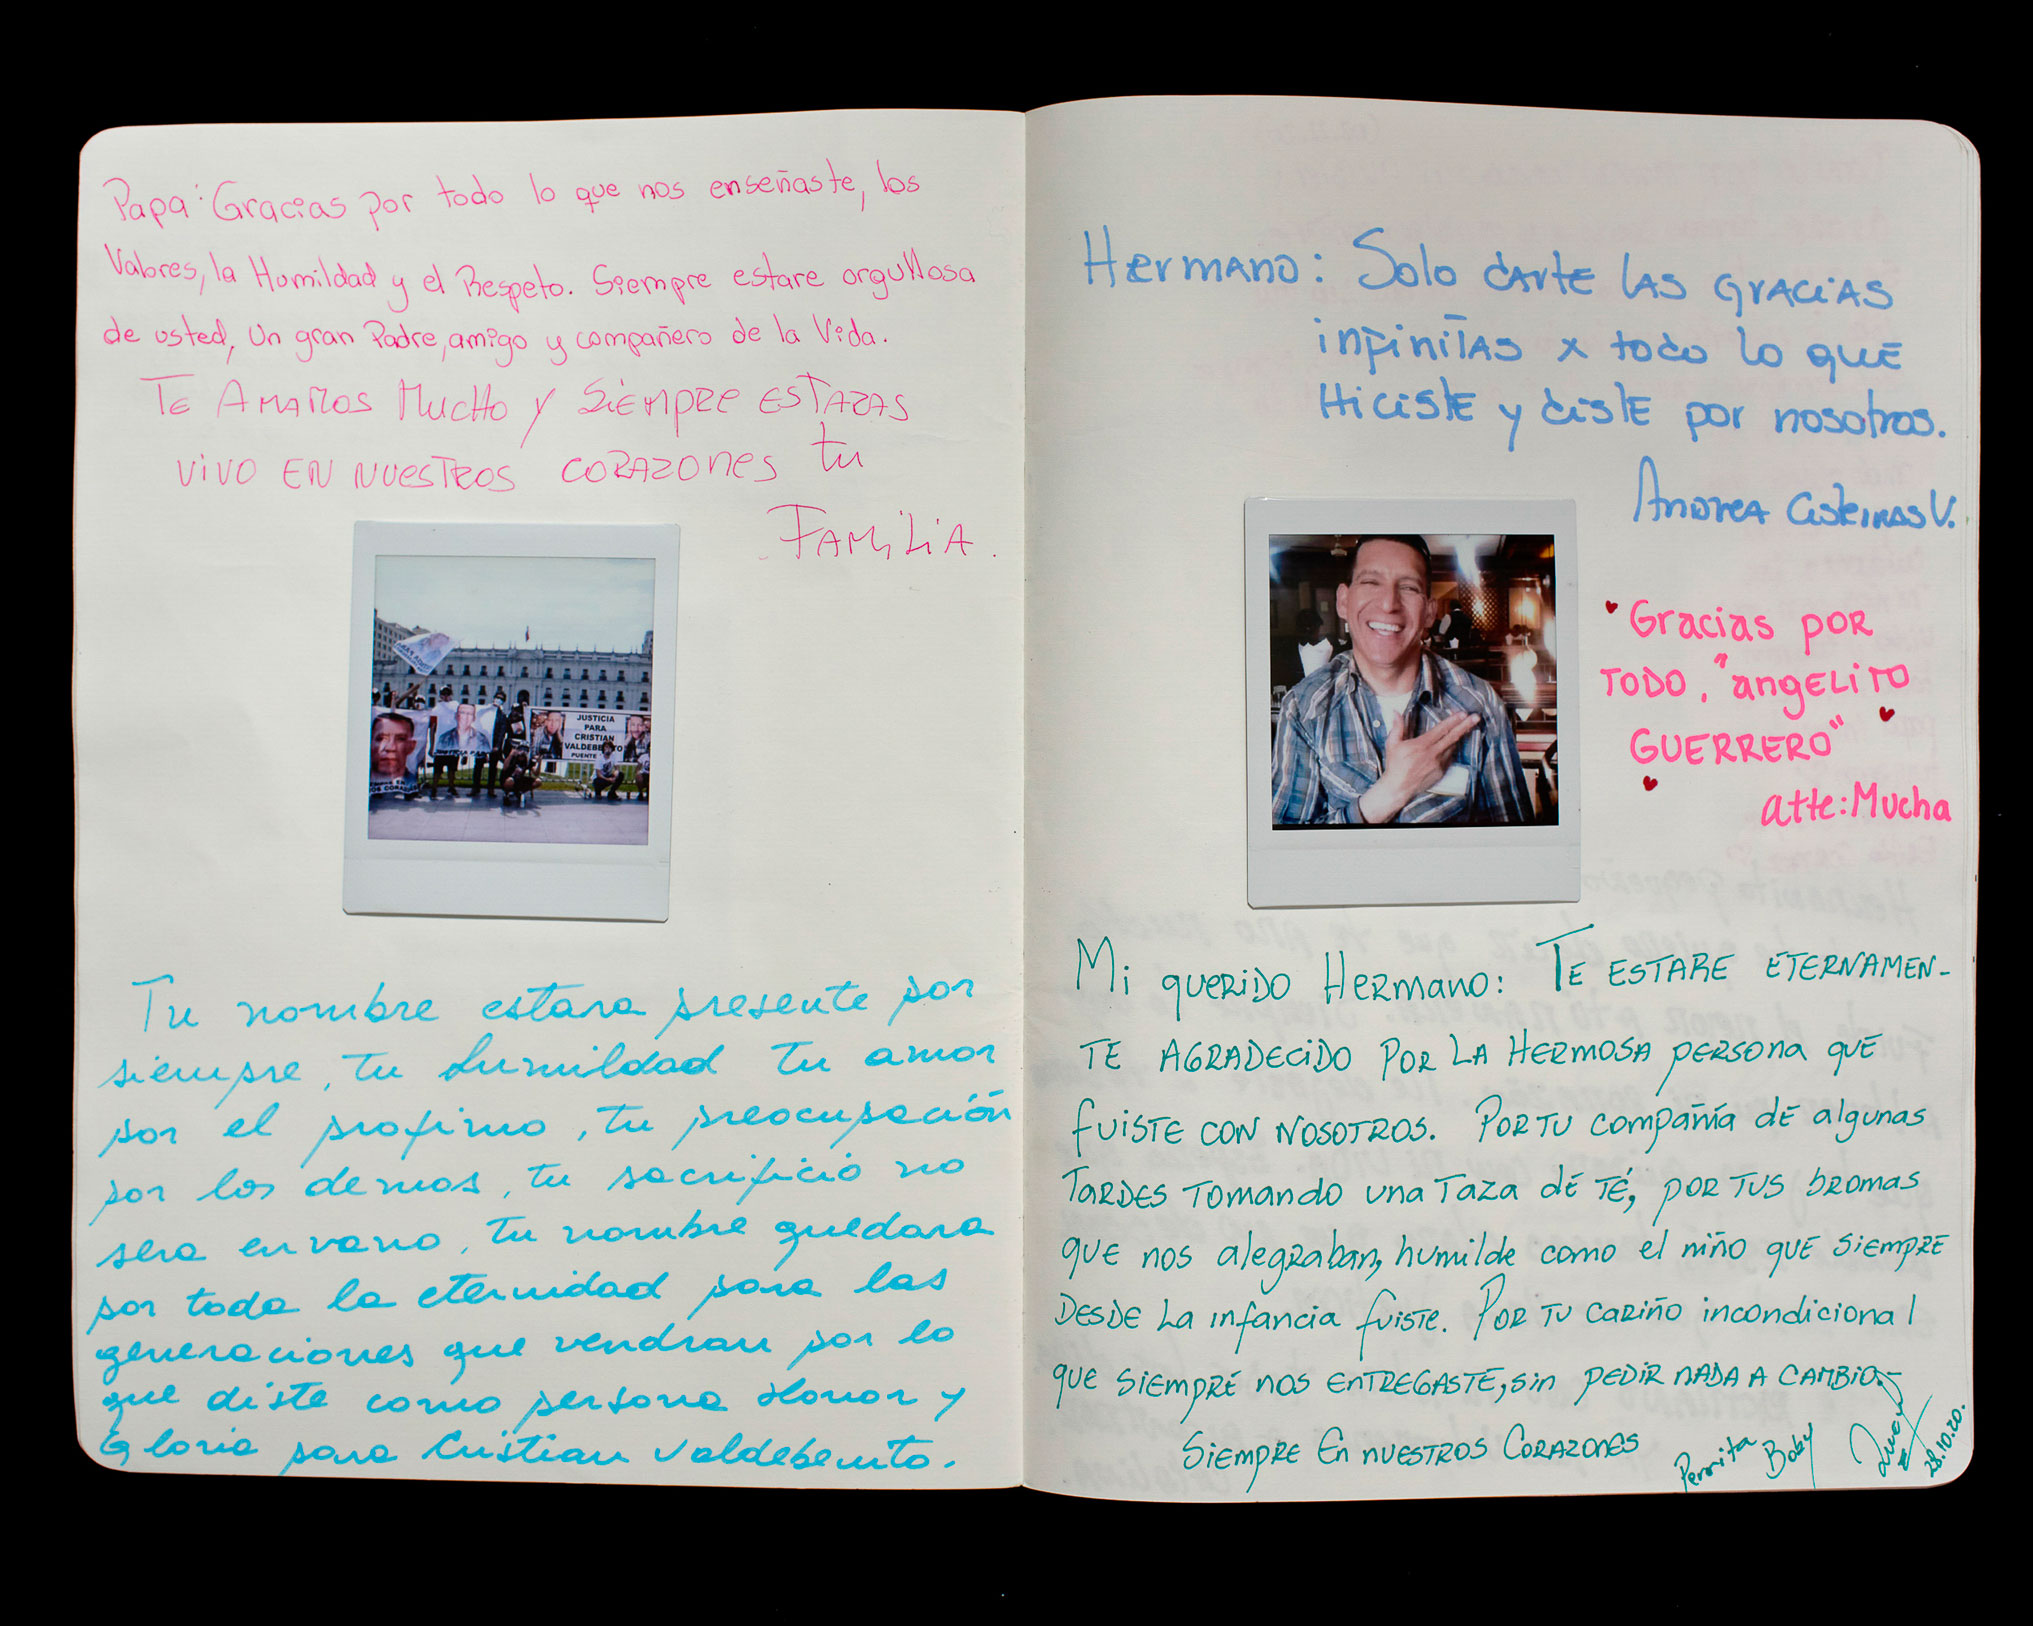 Papa: Gracias por todo lo que nos enseñaste, los
Valores, la Humildad y el Respeto. Siempre estare orgullosa
de usted, un gran Padre, amigo y compañero de la Vida.
TE AMAMOS MUCHO Y SIEMPRE ESTARAS
VIVO EN NUESTROS CORAZONES tu
FAMILIA.
JUSTICIA
PARA
CRISTIAN
VALDEBENITO
PUENTE
Tu nombre estara presente por
siempre, tu humildad tu amor
por el profimo, tu preocupación
por los demas, tu sacrificio no
sera en vano, tu nombre quedara
por toda la eternidad para las
generaciones que vendran por lo
que diste como persona Honor y
Gloria para Cristian Valdebenito.
Hermano: Solo darte las gracias
infinitas x todo lo que
Hiciste y diste por nosotros.
Andrea Cisternas V.
Gracias por
TODO, "angelito
GUERRERO"
atte: Mucha
Mi querido Hermano: TE ESTARE ETERNAMEN-
TE AGRADECIDO POR LA HERMOSA persona que
fuiste con nosotros. Por tu compañía de algunas
tardes tomando una taza de té, por tus bromas
que nos alegraban, humilde como el niño que siempre
desde la infancia fuiste. Por tu cariño incondicional
que siempre nos entregaste, sin pedir nada a cambio.-
Siempre En nuestros Corazones
Perrita Boby
28.10.20.